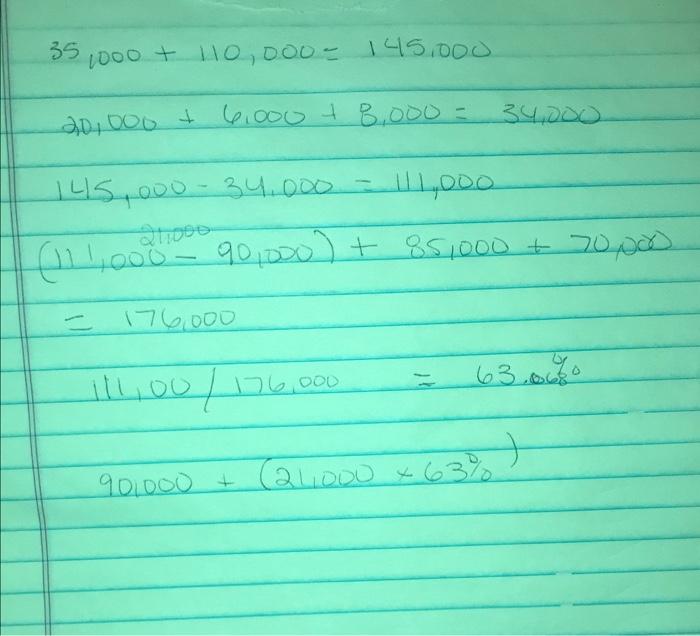 35,000 + 110,000 = 145,000
20,000 + 6,000 + 8,000 = 34,000
145,000 - 34,000 = 111,000
21,000
(111,000 - 90,000) + 85,000 + 70,000
= 176,000
111,00 / 176,000 = 63.068%
90,000 + (21,000 x 63%)